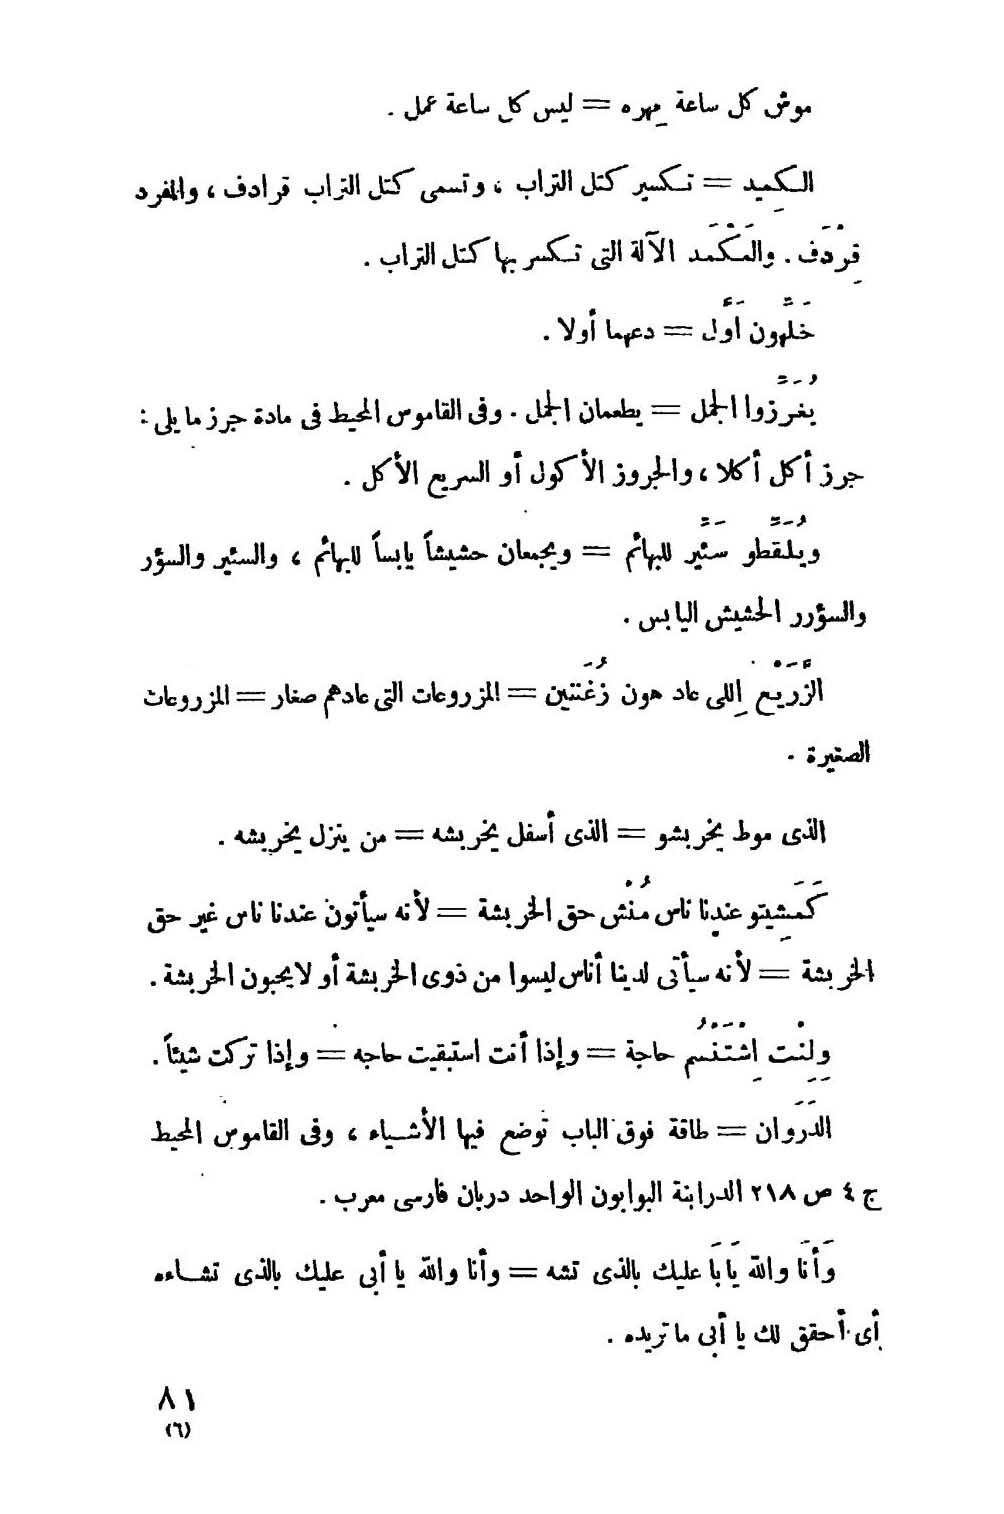 موش كل ساعة مِهره = ليس كل ساعة عمل .
الكِميد = تكسير كتل التراب ، وتسمى كتل التراب قرادف ، والمفرد
قِرْدَف . والمَكْمَد الآلة التى تكسر بها كتل التراب .
خَلَّهون أَوَّل = دعهما أولا .
يُغَرَّزوا الجمل = يطعمان الجمل . وفى القاموس المحيط فى مادة جرز ما يلى :
جرز أكل أكلا ، والجروز الأكول أو السريع الأكل .
ويُلَقَّطو سَئَّير للبهائم = ويجمعان حشيشاً يابساً للبهائم ، والسئير والسؤر
والسؤرر الحشيش اليابس .
الزَّرَيْع إللى عاد هون زُغَنتين = المزروعات التى عادهم صغار = المزروعات
الصغيرة .
الذى موط يخربشو = الذى أسفل يخربشه = من ينزل يخربشه .
كَمَشِيتو عندنا ناس مُنْش حق الخربشة = لأنه سيأتون عندنا ناس غير حق
الخربشة = لأنه سيأتى لدينا أناس ليسوا من ذوى الخربشة أو لا يحبون الخربشة .
ولِنْت اِشْتَنْسُم حاجة = وإذا أنت استبقيت حاجه = وإذا تركت شيئاً .
الدَرَوان = طاقة فوق الباب توضع فيها الأشياء ، وفى القاموس المحيط
ج ٤ ص ٢١٨ الدرابنة البوابون الواحد دربان فارسى معرب .
وَأَنَا والله يَابَا عليك بالذى تشه = وأنا والله يا أبى عليك بالذى تشاءه
أى أحقق لك يا أبى ما تريده .
٨١
(٦)